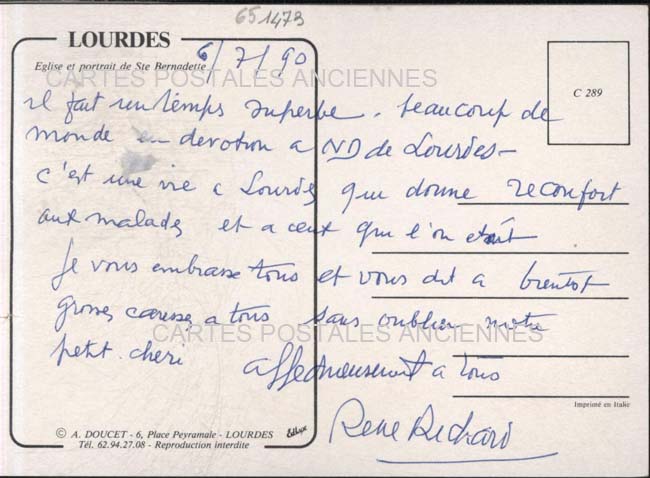 651473
LOURDES
Eglise et portrait de Ste Bernadette
6/7/90
C 289
CARTES POSTALES ANCIENNES
il fait un temps superbe. beaucoup de
monde en devotion a ND de Lourdes -
c'est une vie a Lourdes qui donne reconfort
aux malades et a ceux que l'on
Je vous embrasse tous et vous dit a bientot
grosses caresses a tous sans oublier notre
CARTES POSTALES ANCIENNES
petit cheri
affectueusement a tous
Imprimé en Italie
René Richard
© A. DOUCET - 6, Place Peyramale - LOURDES
Tél. 62.94.27.08 - Reproduction interdite